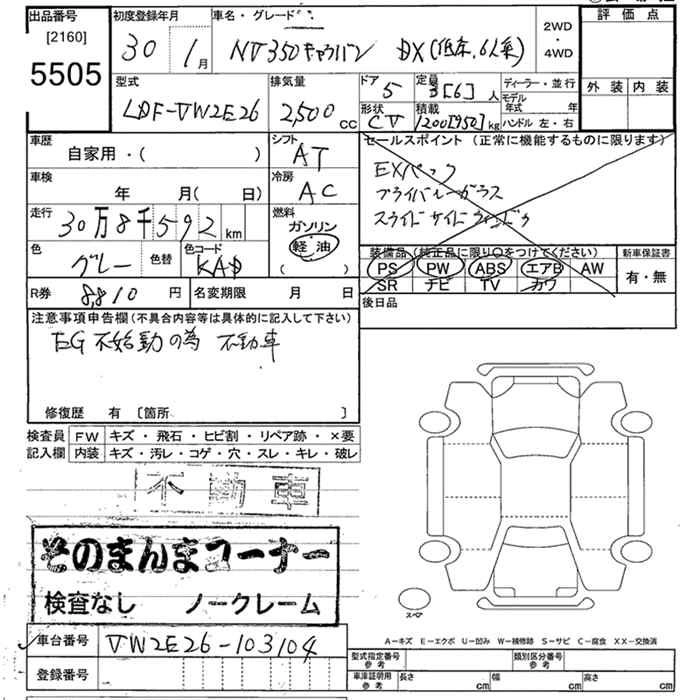 出品番号
[2160]
5505
初度登録年月
30年 1月
車名・グレード
NV350キャラバン DX(低床、6人乗)
2WD
・
4WD
評価点
外装 内装
型式
LDF-VW2E26
排気量
2,500 CC
ドア
5
定員
3[6]人
形状
CV
積載
1200[950]kg
ディーラー・並行
モデル年式 年
ハンドル 左・右
車歴
自家用・( )
シフト
AT
車検
年 月( 日)
冷房
AC
走行
30万8千592km
燃料
ガソリン
軽油
( )
色
グレー
色替
色コード
KAD
セールスポイント(正常に機能するものに限ります)
EXパック
プライバシーガラス
スライドサイドウィンドゥ
装備品(純正品に限り○をつけてください)
PS PW ABS エアB AW
SR ナビ TV カワ
新車保証書
有・無
R券 8,810円
名変期限 月 日
後日品
注意事項申告欄(不具合内容等は具体的に記入して下さい)
EG不始動の為 不動車
修復歴 有 [箇所 ]
検査員
記入欄
FW キズ・飛石・ヒビ割・リペア跡・×要
内装 キズ・汚レ・コゲ・穴・スレ・キレ・破レ
不動車
そのまんまコーナー
検査なし ノークレーム
スペア
A−キズ E−エクボ U−凹み W−補修跡 S−サビ C−腐食 XX−交換済
車台番号 VW2E26-103104
登録番号
型式指定番号
参考
類別区分番号
参考
車庫証明用
参考
長さ cm
幅 cm
高さ cm